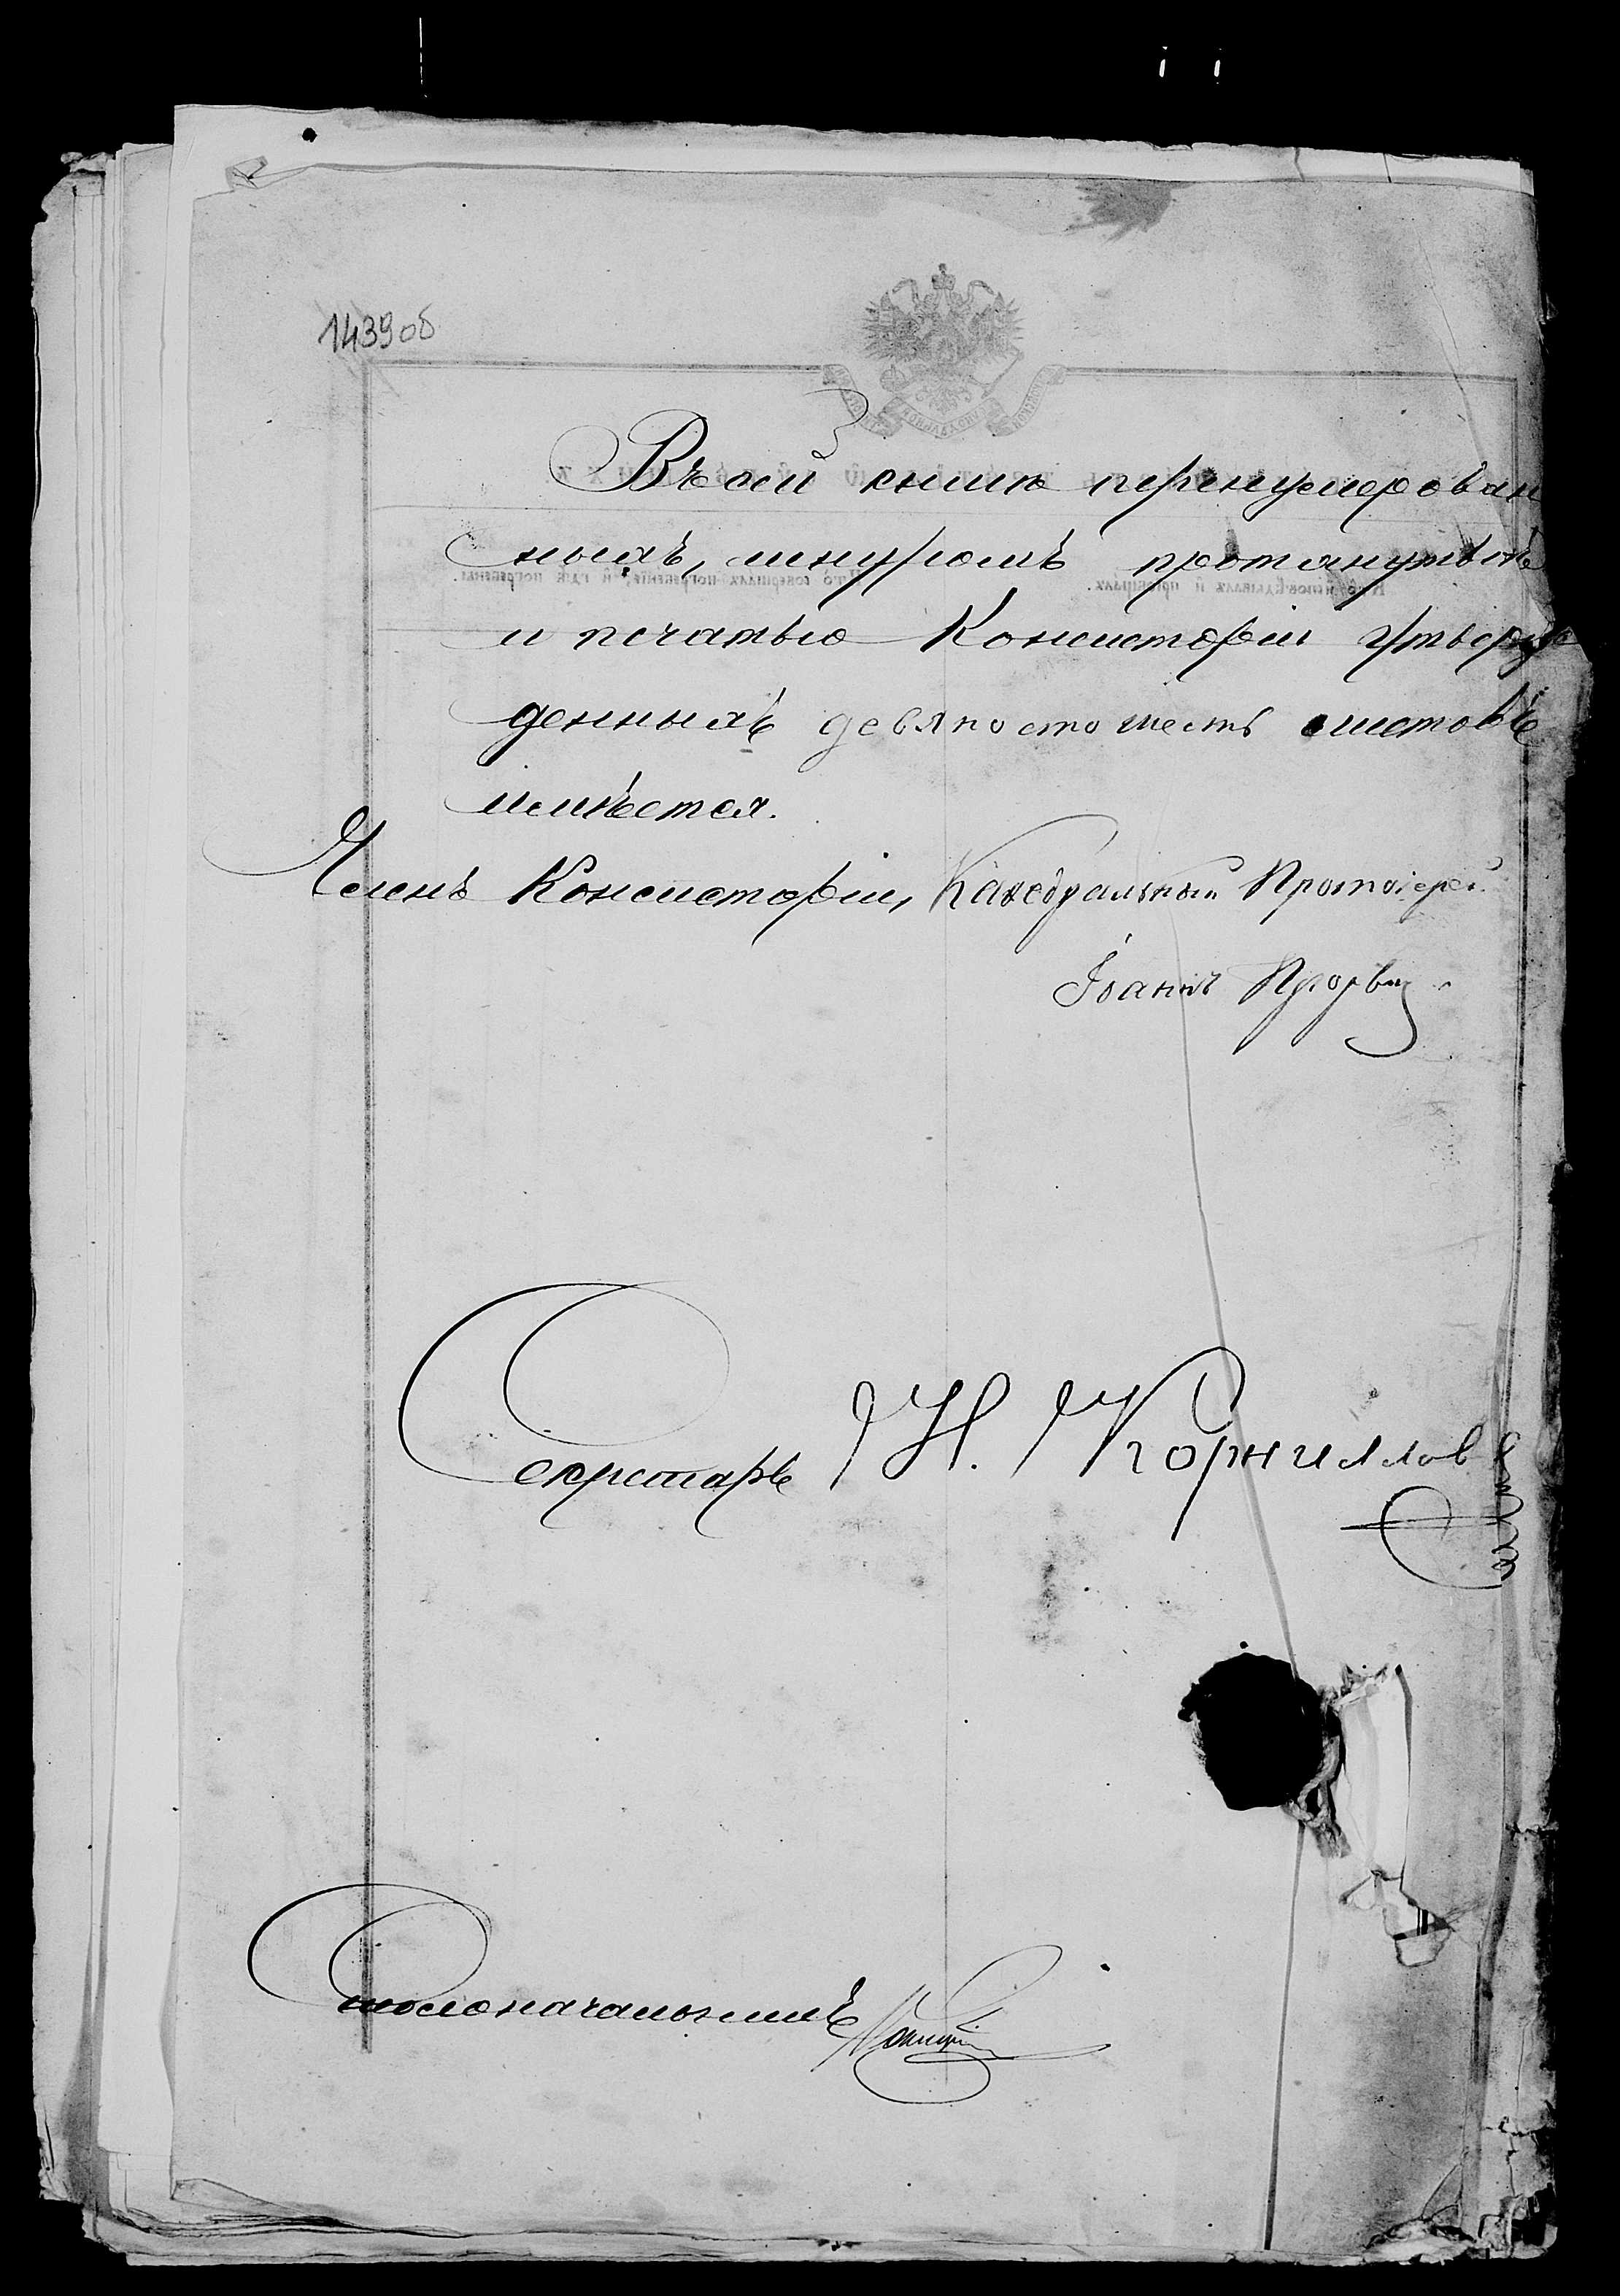 1439об
Въ сей книгѣ перенумерован
ныхъ, шнуромъ протянутыхъ
и печатью Консисторіи утверж
денныхъ девяносто шесть листовъ
имѣется.
Членъ Консисторіи, Каѳедральный Протоіерей
Іоаннъ
Секретарь Н. Корниллов
Столоначальникъ